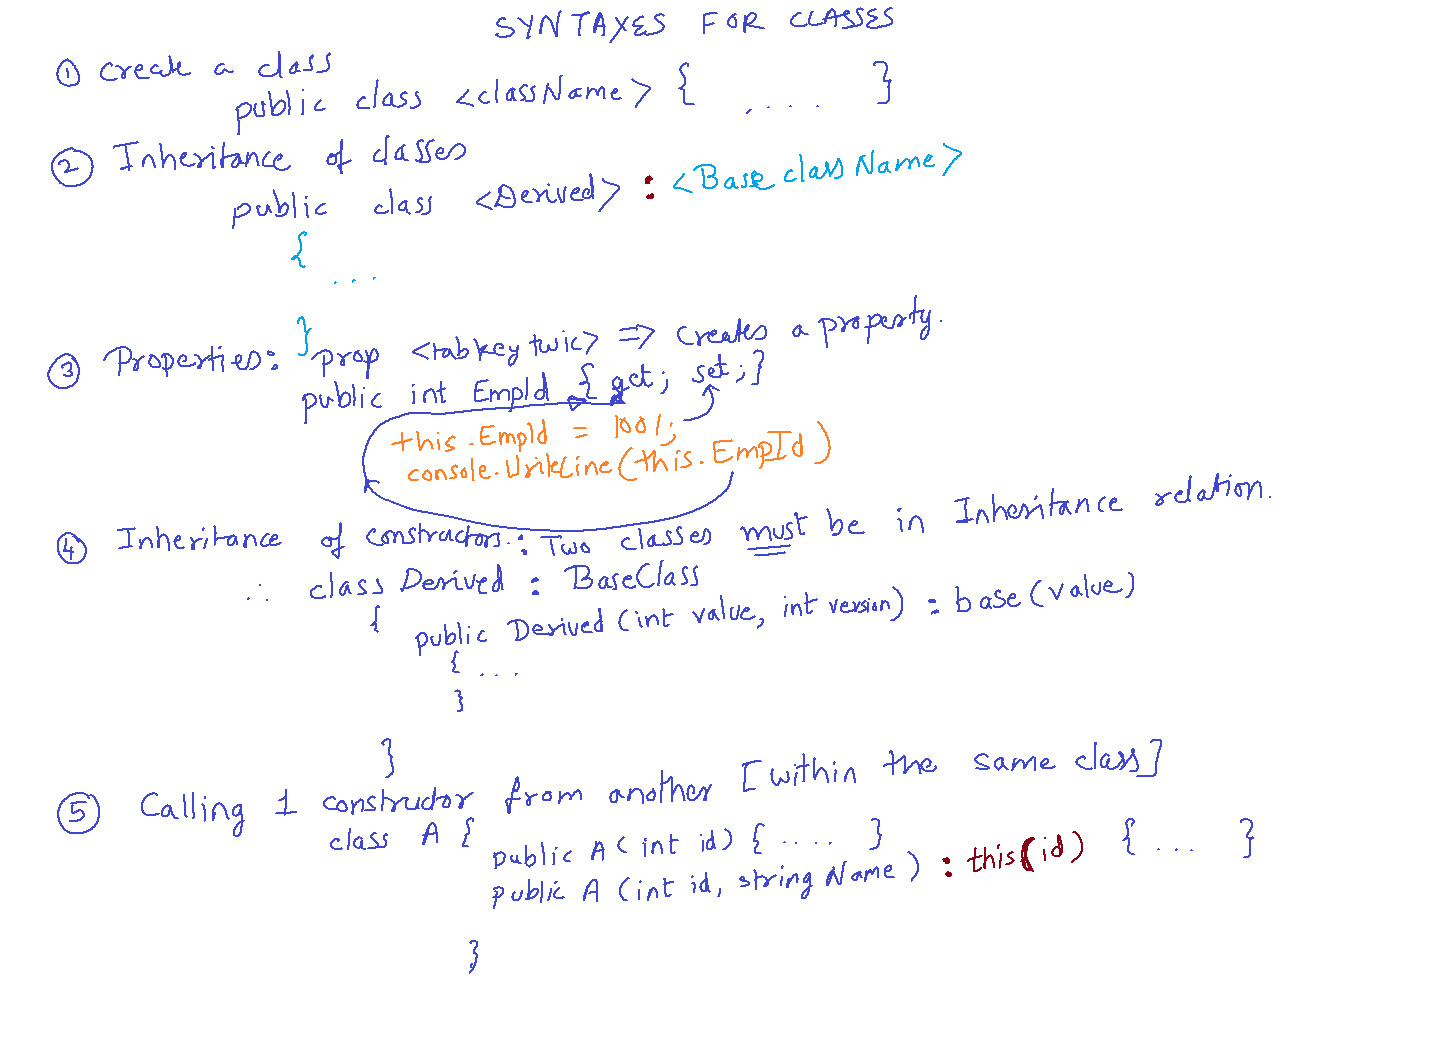 SYNTAXES FOR CLASSES
① Create a class
public class <className> { .... }
② Inheritance of classes
public class <Derived> : <Base class Name>
{
...
}
③ Properties: prop <tab key twic> => creates a property.
public int EmpId { get; set; }
this.EmpId = 1001;
console.WriteLine(this.EmpId)
④ Inheritance of constructors.: Two classes must be in Inheritance relation.
∴ class Derived : BaseClass
{
public Derived (int value, int version) : base (value)
{ ...
}
}
⑤ Calling 1 constructor from another [within the same class]
class A {
public A (int id) { .... }
public A (int id, string Name) : this(id) { ... }
}